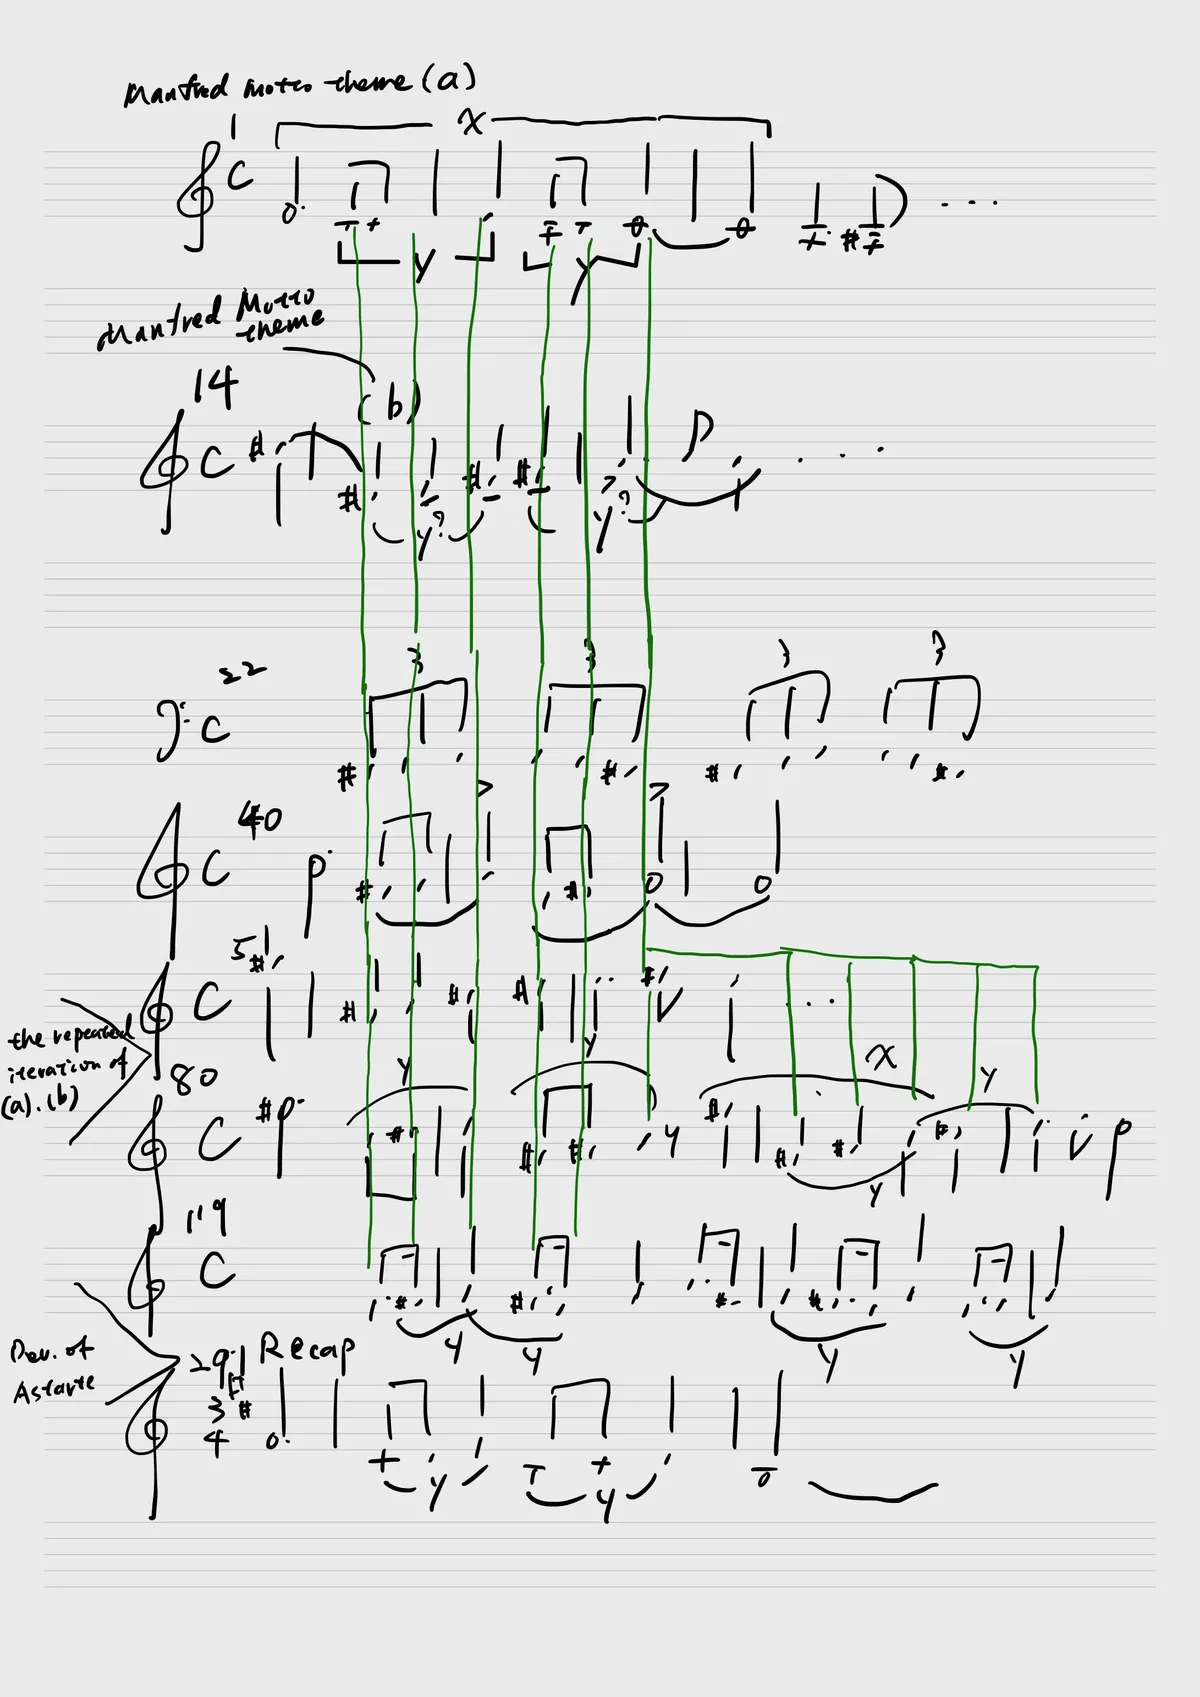 Manfred motto theme (a)
1
x
C
y y
Manfred Motto
theme
14
(b)
C
y? y?
22
3 3 3 3
C
40
C
5
C
the repeated
iteration of
(a). (b)
y y x y
80
C
y
119
C
y y y y
Dev. of
Astarte
291 Recap
3
4
y y